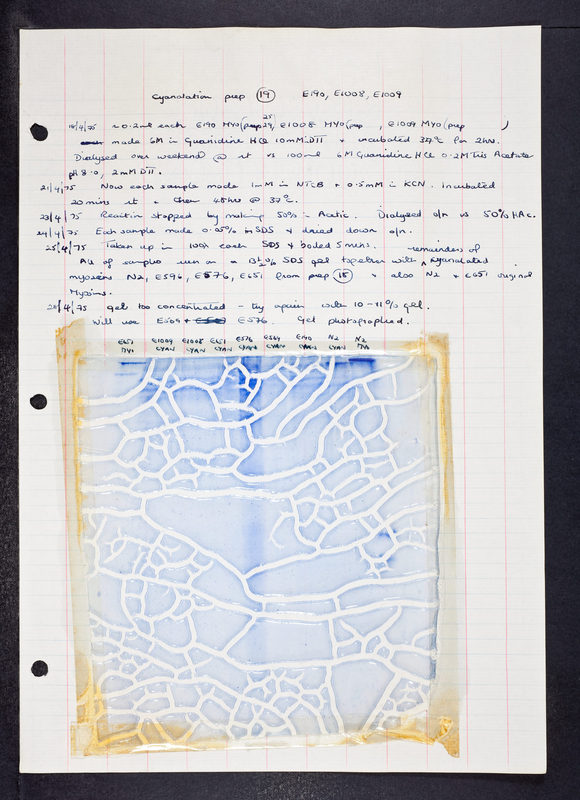 Cyanolation prep (19) E190, E1008, E1009
18/4/75 ~0.2ml each E190 MYO (prep 25, E1008 MYO (prep , E1009 MYO (prep )
made 6M in Guanidine HCl 10mM DTT & incubated 37°C for 2hrs.
Dialysed over weekend @ rt vs 100ml 6M Guanidine HCl 0.2M Tris Acetate
pH 8.0, 2mM DTT.
21/4/75 Now each sample made 1mM in NTCB & 0.5mM in KCN. Incubated
20 mins rt & then 48hrs @ 37°C.
23/4/75 Reaction stopped by making 50% in Acetic. Dialysed o/n vs 50% HAc.
24/4/75 Each sample made 0.05% in SDS & dried down o/n.
25/4/75 Taken up in 100λ each SDS & boiled 5 mins. remainders of
All of samples run on a % SDS gel together with cyanolated
myosins N2, E596, E576, E651 from prep (15) & also N2 & E651 original
Myosins.
28/4/75 gel too concentrated - try again with 10-11% gel.
Will use E509 & E576. Get photographed.
E651 E1009 E1008 E651 E576 E569 E190 N2 N2
Myo CYAN CYAN CYAN CYAN CYAN CYAN CYAN Myo